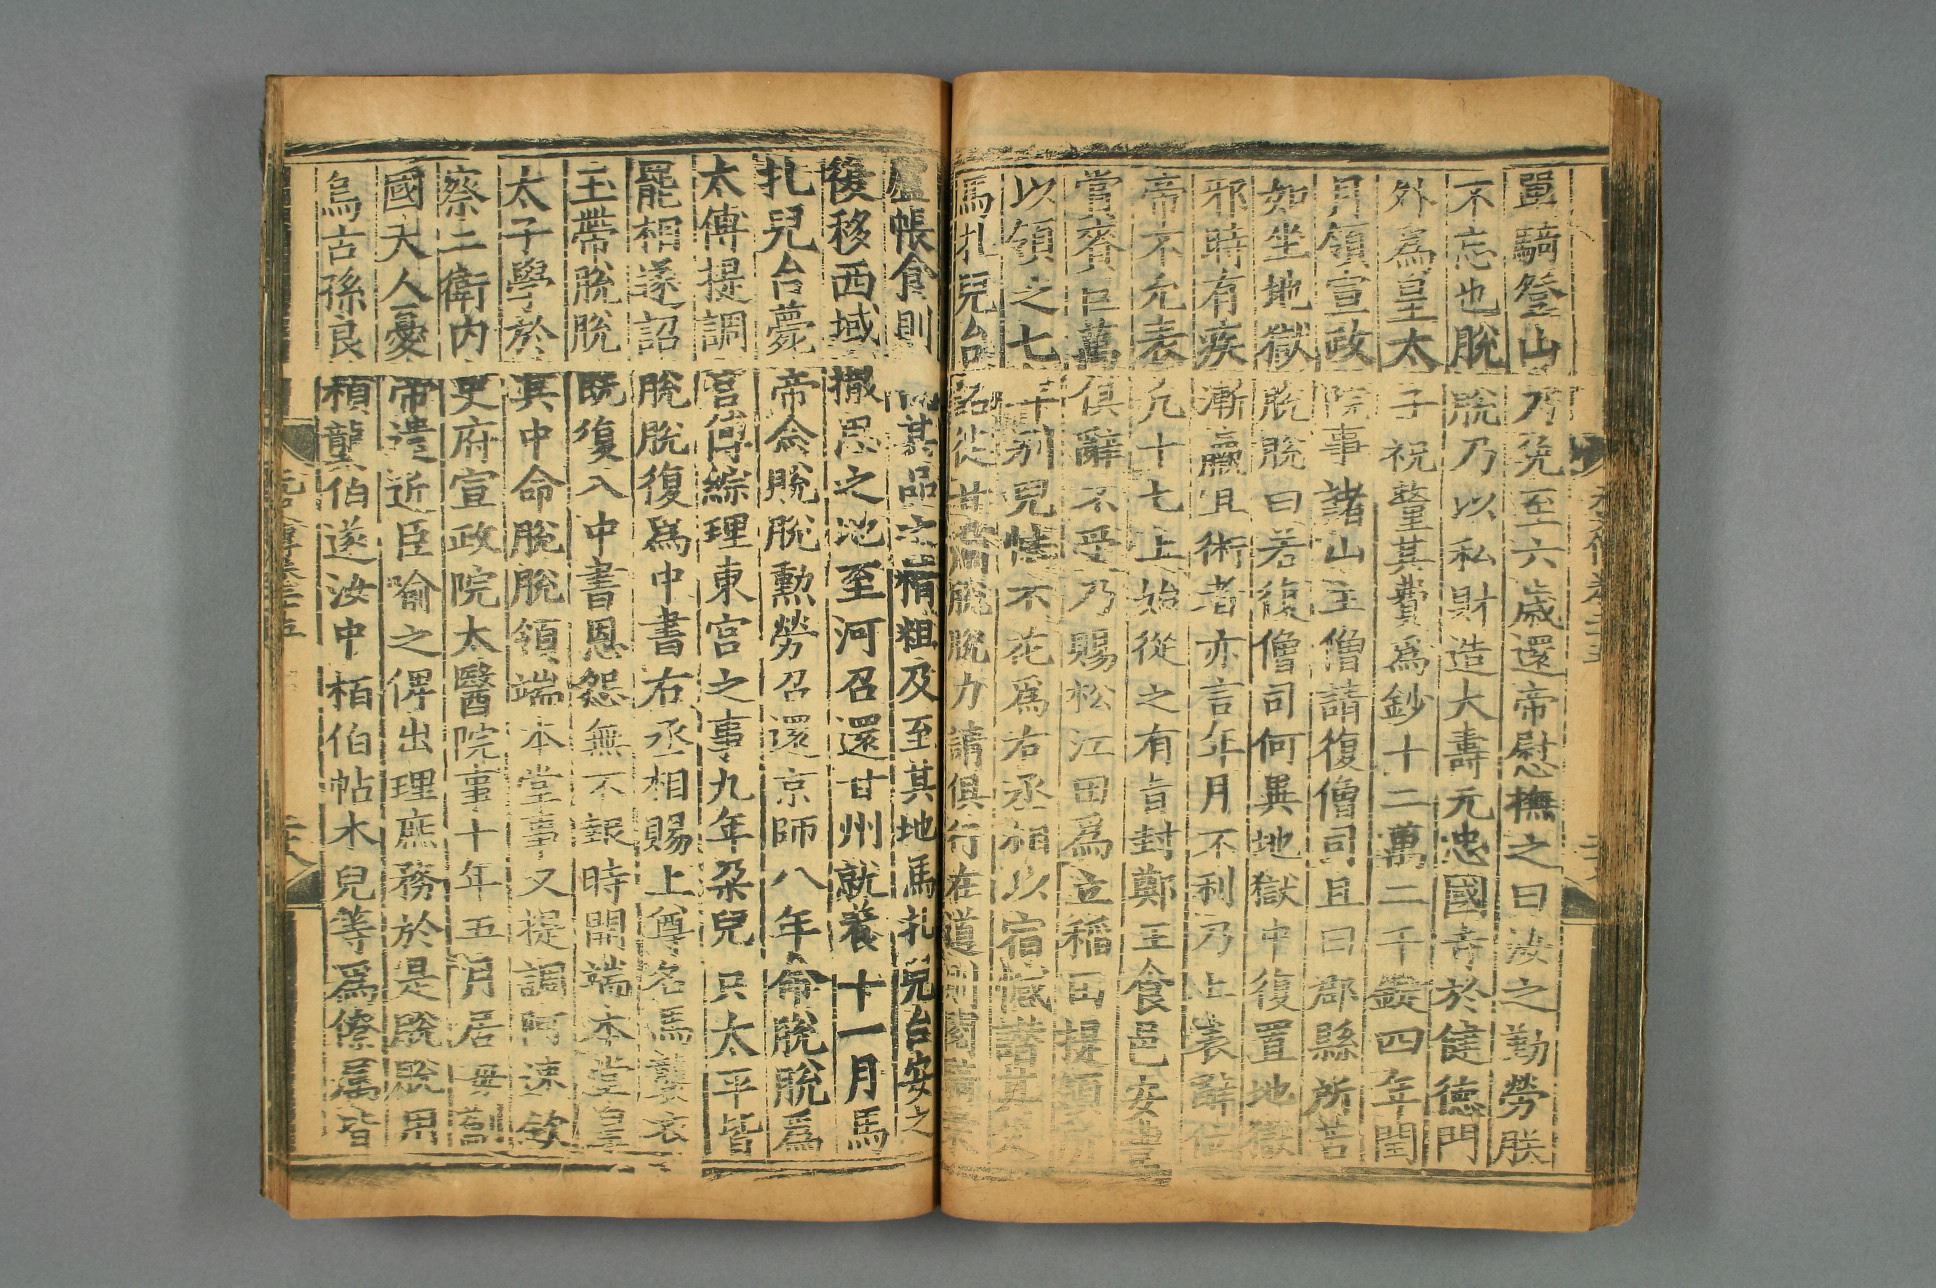 單騎登山乃免至六歲還帝慰撫之曰汝之勤勞朕
不忘也脫脫乃以私財造大壽元忠國寺於健德門
外爲皇太子祝釐其費爲鈔十二萬二千錠四年閏
月領宣政院事諸山主僧請復僧司且曰郡縣所苦
如坐地獄脫脫曰若復僧司何異地獄中復置地獄
邪時有疾漸羸且術者亦言年月不利乃上表辭位
帝不允表凡十七上始從之有旨封鄭王食邑安豐
賞賚巨萬俱辭不受乃賜松江田爲立稻田提領所
以領之七年別兒怯不花爲右丞相以宿憾譖其父
馬扎兒台詔徙甘肅脫脫力請俱行在道則閱騎乘
廬帳食則視其品之精粗及至其地馬扎兒台安之
復移西域撒思之地至河召還甘州就養十一月馬
扎兒台薨帝念脫脫勳勞召還京師八年命脫脫爲
太傅提調宮傅綜理東宮之事九年朵兒只太平皆
罷相遂詔脫脫復爲中書右丞相賜上尊名馬襲衣
玉帶脫脫既復入中書恩怨無不報時開端本堂皇
太子學於其中命脫脫領端本堂事又提調阿速欽
察二衛內史府宣政院太醫院事十年五月居母薊
國夫人憂帝遣近臣喻之俾出理庶務於是脫脫用
烏古孫良楨龔伯遂汝中栢伯帖木兒等爲僚屬皆
元史列傳卷二十五